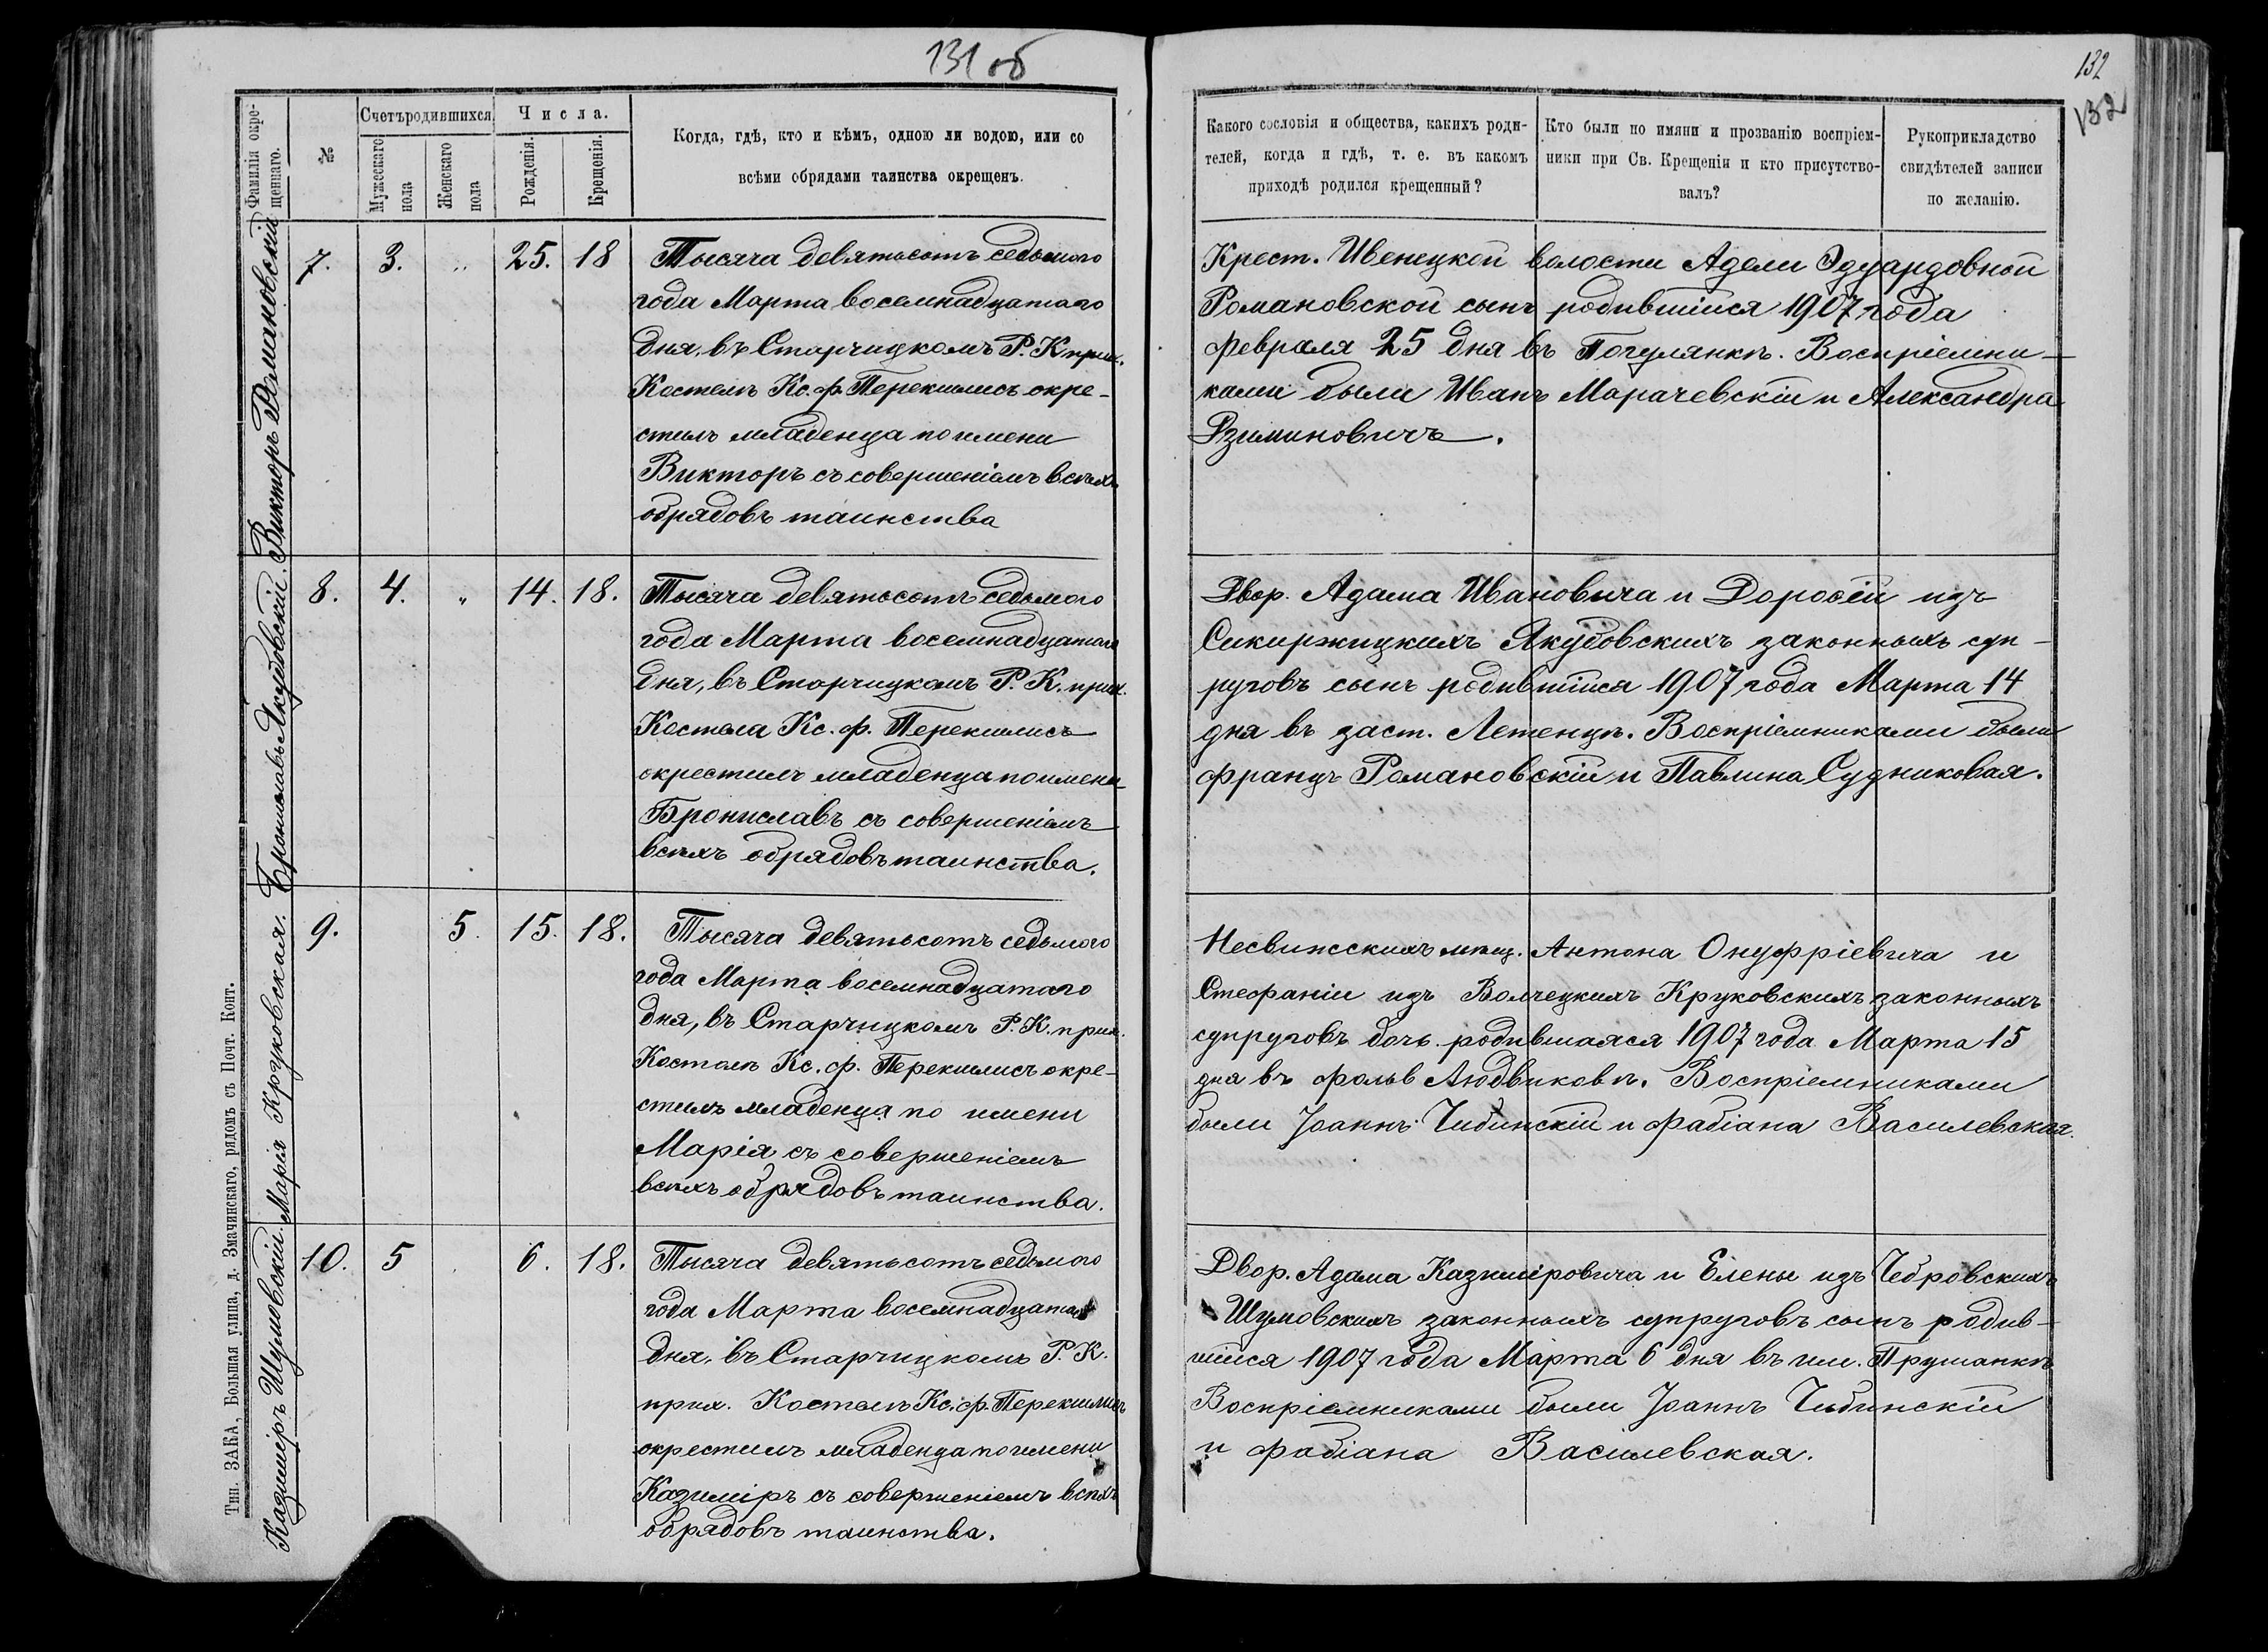 131 об
Фамилія окре-
щеннаго.
№
Счетъ родившихся
Мужескаго
пола
Женскаго
пола
Числа.
Рожденія.
Крещенія.
Когда, гдѣ, кто и кѣмъ, одною ли водою, или со
всѣми обрядами таинства окрещенъ.
Викторъ Романовскій
7.
3.
"
25.
18
Тысяча девятьсотъ седьмого
года Марта восемнадцатаго
дня, въ Старчицкомъ Р. К прих.
Костелѣ Кс. Ф. Перекшлисъ окре-
стилъ младенца по имени
Викторъ съ совершеніемъ всѣхъ
обрядовъ таинства
Брониславъ Якубовскій.
8.
4.
"
14.
18.
Тысяча девятьсотъ седьмого
года Марта восемнадцатаго
дня, въ Старчицкомъ Р. К. прих.
Костела Кс. Ф.
окрестилъ младенца по имени
Брониславъ съ совершеніемъ
всѣхъ обрядовъ таинства.
Марія Круковская.
9.
5.
15.
18.
Тысяча девятьсотъ седьмого
года Марта восемнадцатаго
дня, въ Старчицкомъ Р. К. прих.
Костелѣ Кс. Ф. окре-
стилъ младенца по имени
Марія съ совершеніемъ
всѣхъ обрядовъ таинства.
Казиміръ Шумовскій.
10.
5
6.
18.
Тысяча девятьсотъ седьмого
года Марта восемнадцатаго
дня, въ Старчицкомъ Р. К.
прих. Костелѣ Кс. Ф.
окрестилъ младенца по имени
Казиміръ съ совершеніемъ всѣхъ
обрядовъ таинства.
Тип. ЗАКА, Большая улица, д. Змачинскаго, рядомъ съ Почт. Конт.
132
132
Какого сословія и общества, какихъ роди-
телей, когда и гдѣ, т. е. въ какомъ
приходѣ родился крещенный?
Кто были по имяни и прозванію воспріем-
ники при Св. Крещеніи и кто присутство-
валъ?
Рукоприкладство
свидѣтелей записи
по желанію.
Крест. Ивенецкой волости Адели Эдуардовной
Романовской сынъ родившійся 1907 года
Февраля 25 дня въ Погулянкѣ. Воспріемни-
ками были Иванъ Марачевскій и Александра
Рзиминовичъ.
Двор. Адама Ивановича и Доровѳіи изъ
Сикиржицкихъ Якубовскихъ законныхъ суп-
руговъ сынъ родившійся 1907 года Марта 14
дня въ заст. Летенцѣ. Воспріемниками были
Францъ Романовскій и Павлина Судниковая.
Несвижскихъ мѣщ. Антона Онуфріевича и
Стефаніи изъ Волчецкихъ Круковскихъ законныхъ
супруговъ дочь родившаяся 1907 года Марта 15
дня въ фольв Людвиковѣ. Воспріемниками
были Іоаннъ Чибинскій и Фабіана Василевская.
Двор. Адама Казиміровича и Елены изъ Чебровскихъ
Шумовскихъ законныхъ супруговъ сынъ родив-
шійся 1907 года Марта 6 дня въ им. Прушанкѣ
Воспріемниками были Іоаннъ Чибинскій
и Фабіана Василевская.